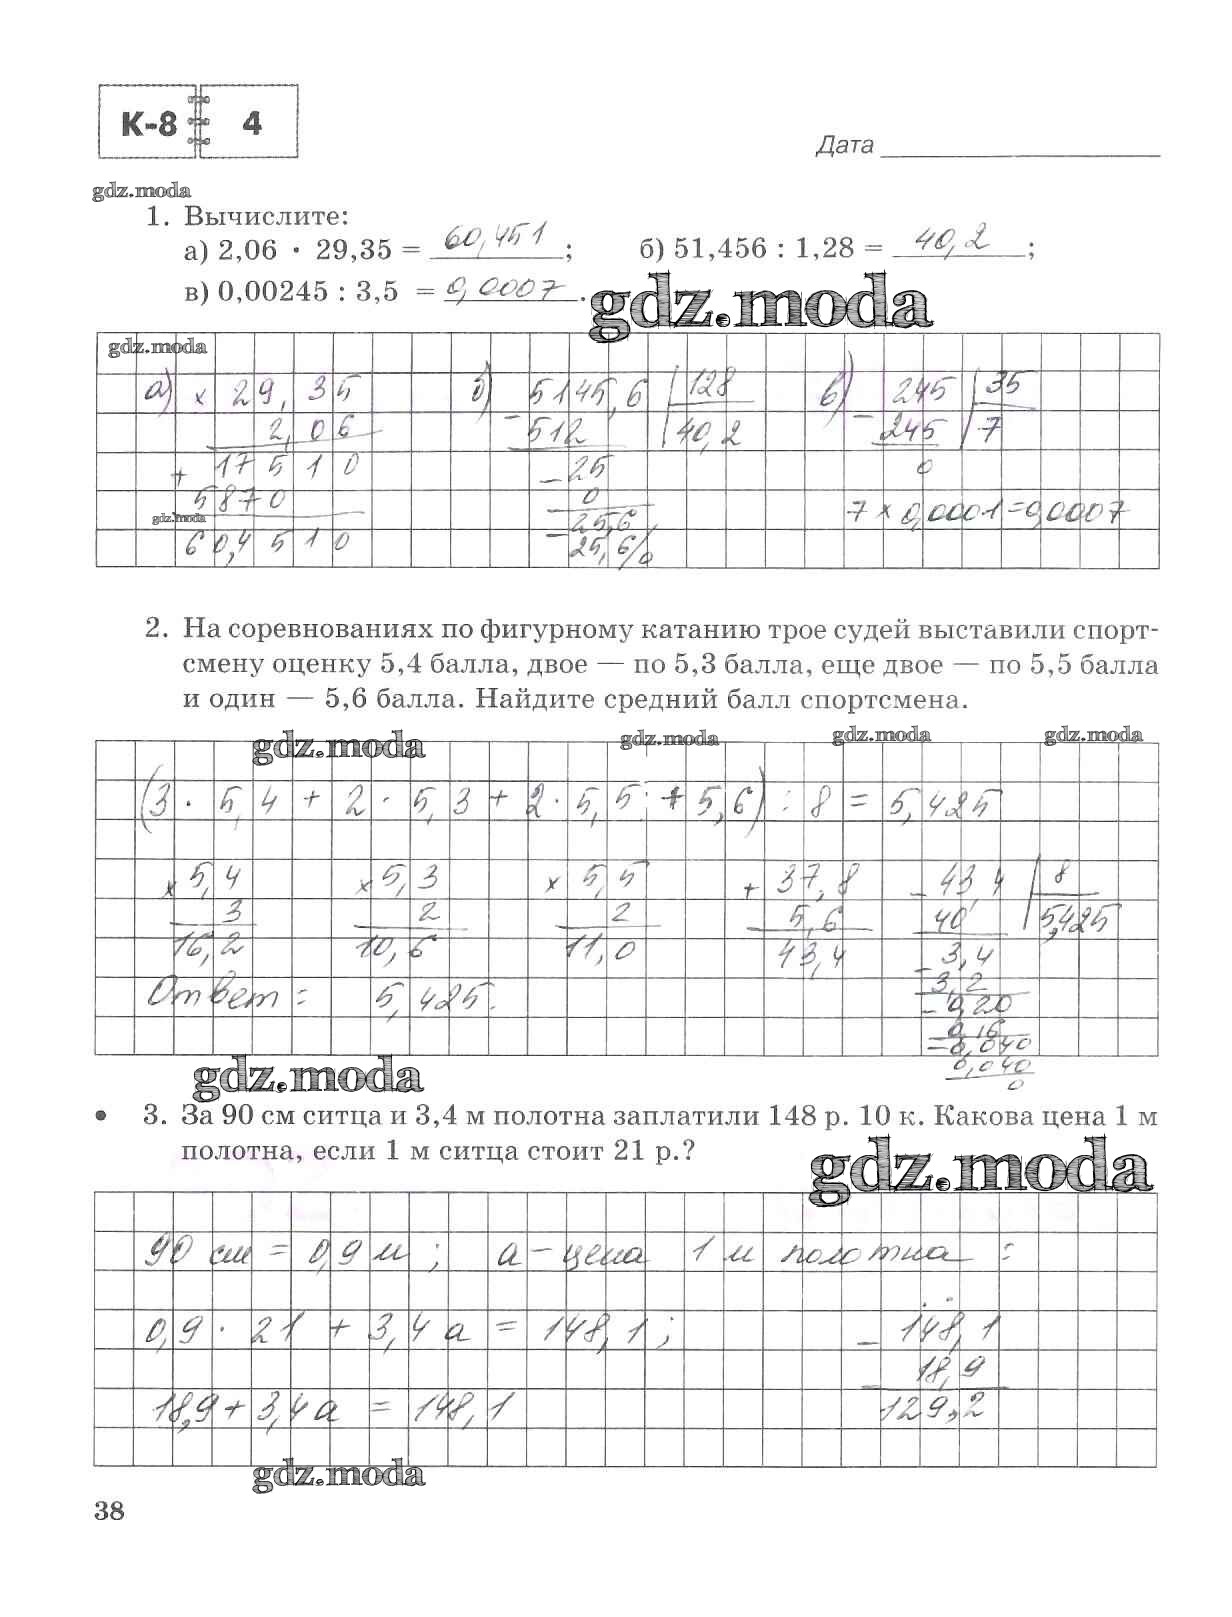 К-8 4
Дата
gdz.moda
1. Вычислите:
а) 2,06 · 29,35 = 60,451 ; б) 51,456 : 1,28 = 40,2 ;
в) 0,00245 : 3,5 = 0,0007 .
gdz.moda
gdz.moda
а) × 29,35 б) 5145,6 | 128 в) 245 | 35
2,06 − 512 | 40,2 − 245 | 7
+ 17510 − 25 0
5870 0 7 × 0,0001 = 0,0007
gdz.moda
− 25,6
60,4510 25,6
0
2. На соревнованиях по фигурному катанию трое судей выставили спорт-
смену оценку 5,4 балла, двое — по 5,3 балла, еще двое — по 5,5 балла
и один — 5,6 балла. Найдите средний балл спортсмена.
gdz.moda gdz.moda gdz.moda gdz.moda
(3 · 5,4 + 2 · 5,3 + 2 · 5,5 + 5,6) : 8 = 5,425
× 5,4 × 5,3 × 5,5 + 37,8 − 43,4 | 8
3 2 2 5,6 40 | 5,425
16,2 10,6 11,0 43,4 − 3,4
Ответ: 5,425. 3,2
− 0,20
0,16
− 0,040
0,040
0
gdz.moda
• 3. За 90 см ситца и 3,4 м полотна заплатили 148 р. 10 к. Какова цена 1 м
полотна, если 1 м ситца стоит 21 р.?
gdz.moda
90 см = 0,9 м ; а – цена 1 м полотна :
0,9 · 21 + 3,4 а = 148,1 ; − 148,1
18,9
18,9 + 3,4 а = 148,1 129,2
gdz.moda
38